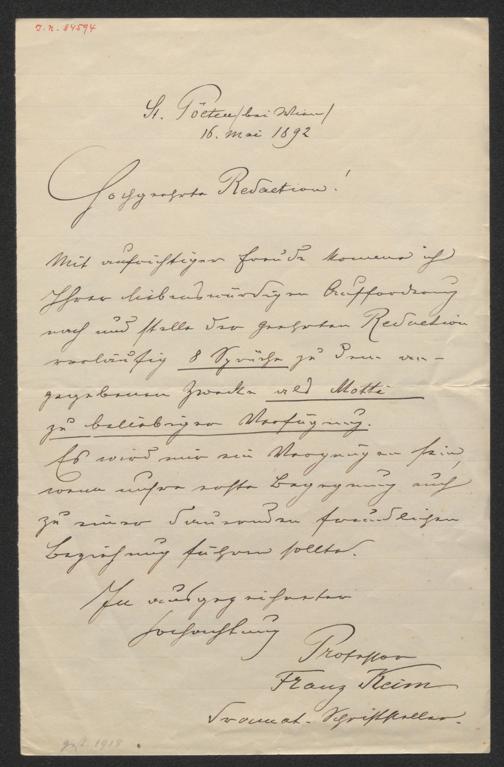 J. N. 84594
St. Pölten/bei Wien/
16. Mai 1892
Hochgeehrte Redaction!
Mit aufrichtiger Freude komme ich
Ihrer liebenswürdigen Aufforderung
nach und stelle der geehrten Redaction
vorläufig 8 Sprüche zu dem an-
gegebenen Zwecke als Motti
zu beliebiger Verfügung.
Es wird mir ein Vergnügen sein,
wenn unsre erste Begegnung auch
zu einer dauernden freundlichen
Beziehung führen sollte.
In ausgezeichneter
Hochachtung
Professor
Franz Keim
dramat. Schriftsteller.
gest. 1918